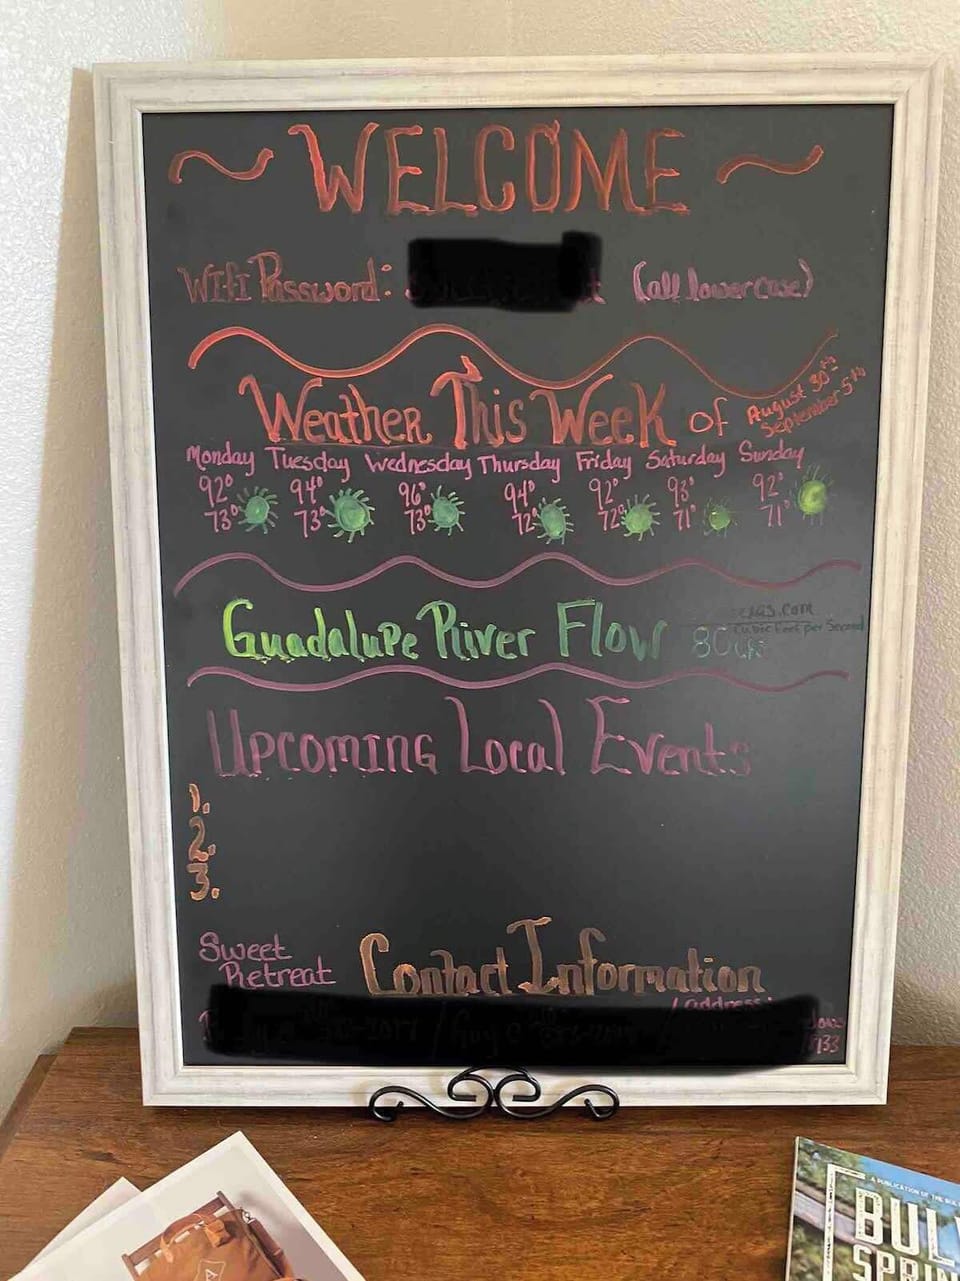 ~ WELCOME ~
WIfI Password: (all lowercase)
Weather This Week of August 30th
September 5th
Monday Tuesday Wednesday Thursday Friday Saturday Sunday
92° 94° 96° 94° 92° 93° 92°
73° 73° 73° 72° 72° 71° 71°
Guadalupe River Flow 80cfs
Cubic Feet per Second
Upcoming Local Events
1.
2.
3.
Sweet
Retreat
Contact Information
/ address:
A PUBLICATION OF THE
BUL
SPRIN
A